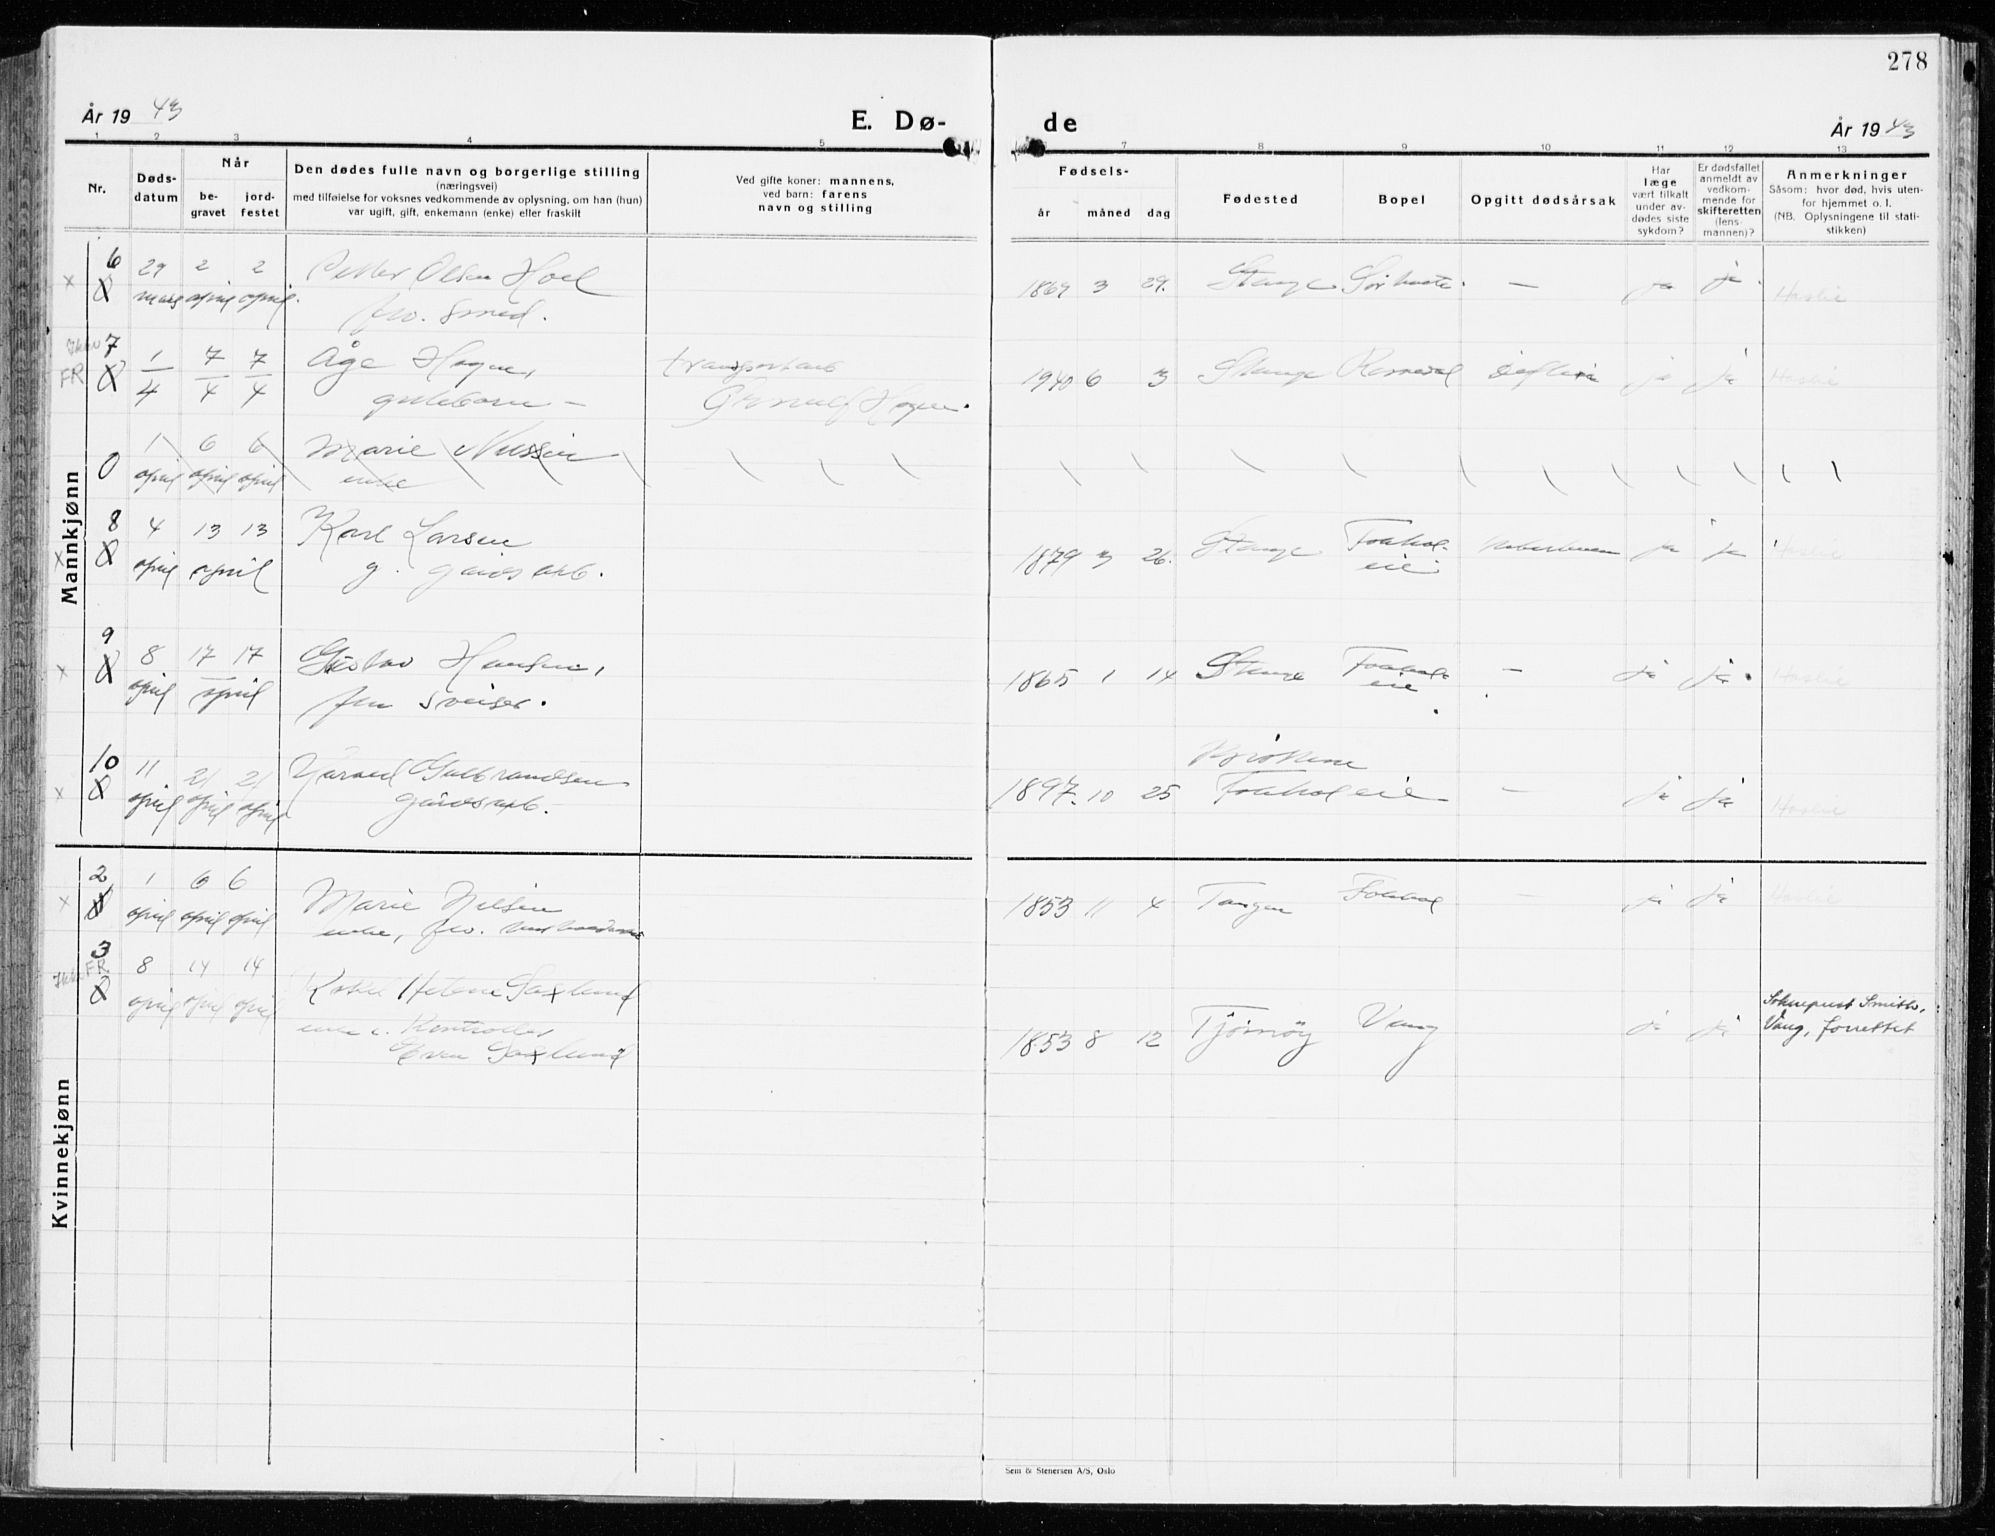 278
År 19 43
E. Dø-
de
År 19 43
1 2 3 4 5 7 8 9 10 11 12 13
Nr.
Døds-
datum
Når
be-
gravet
jord-
festet
Den dødes fulle navn og borgerlige stilling
(næringsvei)
med tilføielse for voksnes vedkommende av oplysning, om han (hun)
var ugift, gift, enkemann (enke) eller fraskilt
Ved gifte koner: mannens,
ved barn: farens
navn og stilling
Fødsels-
år måned dag
Fødested
Bopel
Opgitt dødsårsak
Har
læge
vært tilkalt
under av-
dødes siste
sykdom?
Er dødsfallet
anmeldt av
vedkom-
mende for
skifteretten
(lens-
mannen)?
Anmerkninger
Såsom: hvor død, hvis uten-
for hjemmet o. l.
(NB. Oplysningene til stati-
stikken)
Mannkjønn
6 29 2 2 Petter Olsen Hoel 1869 3 29. Stange — ja ja Haslie
mars april april fhv. smed.
Ikke 7 1 7 7 Åge Hagen, 1940 6 3 Stange difteri ja ja Haslie
FR 4 4 4 guttebarn —
0 1 6 6 Marie Nilssen
april april april enke
8 4 13 13 Karl Larsen 1879 3 26. Stange Fokhol- ja ja Haslie
april april g. gårdsarb. eie
9 8 17 17 Gustav Hansen, 1865 1 14 Stange Fokhol- — ja ja Haslie
april april fhv sveiser. eie
10 11 21 21 Gulbrandsen 1897 10 25 Fokhol eie — ja ja Haslie
april april april gårdsarb.
Kvinnekjønn
2 1 6 6 Marie Nilsen 1853 11 4 Tangen Fokhol — ja ja Haslie
april april april enke, fhv.
3 Ikke FR 8 14 14 Helene Saxlund 1853 8 12 Tjømøy Vang ja ja Sokneprest Smitt,
april april april enke e. Kontrollør Vang, forrettet
Even Saxlund
Sem & Stenersen A/S, Oslo